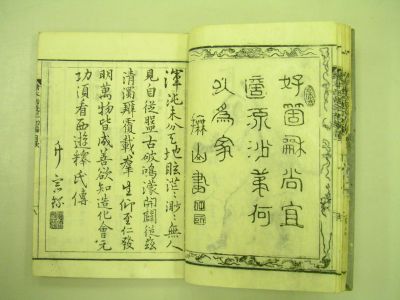 好箇龢尚宜
流沙何
以為
山書
渾沌未分天地眩茫〻渺〻無人
見自從盤古破鴻濛開闢從茲
清濁辨覆載羣生仰至仁發
明萬物皆成善欲知造化會元
功須看西遊釋氏傳